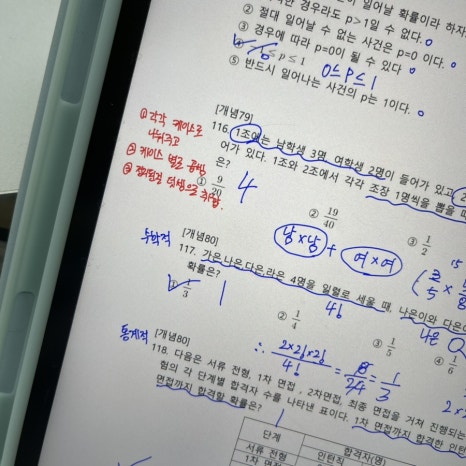 한 경우라도 p>1일 수 없다.
② 절대 일어날 수 없는 사건은 p=0 이다.
③ 경우에 따라 p=0이 될 수 있다
≤ p ≤ 1
0≤P≤1
⑤ 반드시 일어나는 사건의 p는 1이다.
[개념79]
116. 1조에는 남학생 3명, 여학생 2명이 들어가 있고
어가 있다. 1조와 2조에서 각각 조장 1명씩을 뽑을 때
은?
① 각각 케이스로
나눠주고
② 케이스 별로 곱방
① 9/20
4
② 19/40
③ 1/2
남×남 + 여×여
수학적
[개념80]
117. 가은,나은,다은,라은 4명을 일렬로 세울 때, 나은이와 다은
확률은?
① 1/3
1
4!
나은
② 1/4
③ 1/5
④ 1/6
통계적
[개념80]
∴ 2×2!×2!/4! = 8/24 = 1/3
118. 다음은 서류 전형, 1차 면접, 2차면접, 최종 면접을 거쳐 진행되는
험의 각 단계별 합격자 수를 나타낸 표이다. 1차 면접까지 합격한 인턴
면접까지 합격할 확률은?
단계
합격자(명)
서류 전형
인턴직
1차 면접